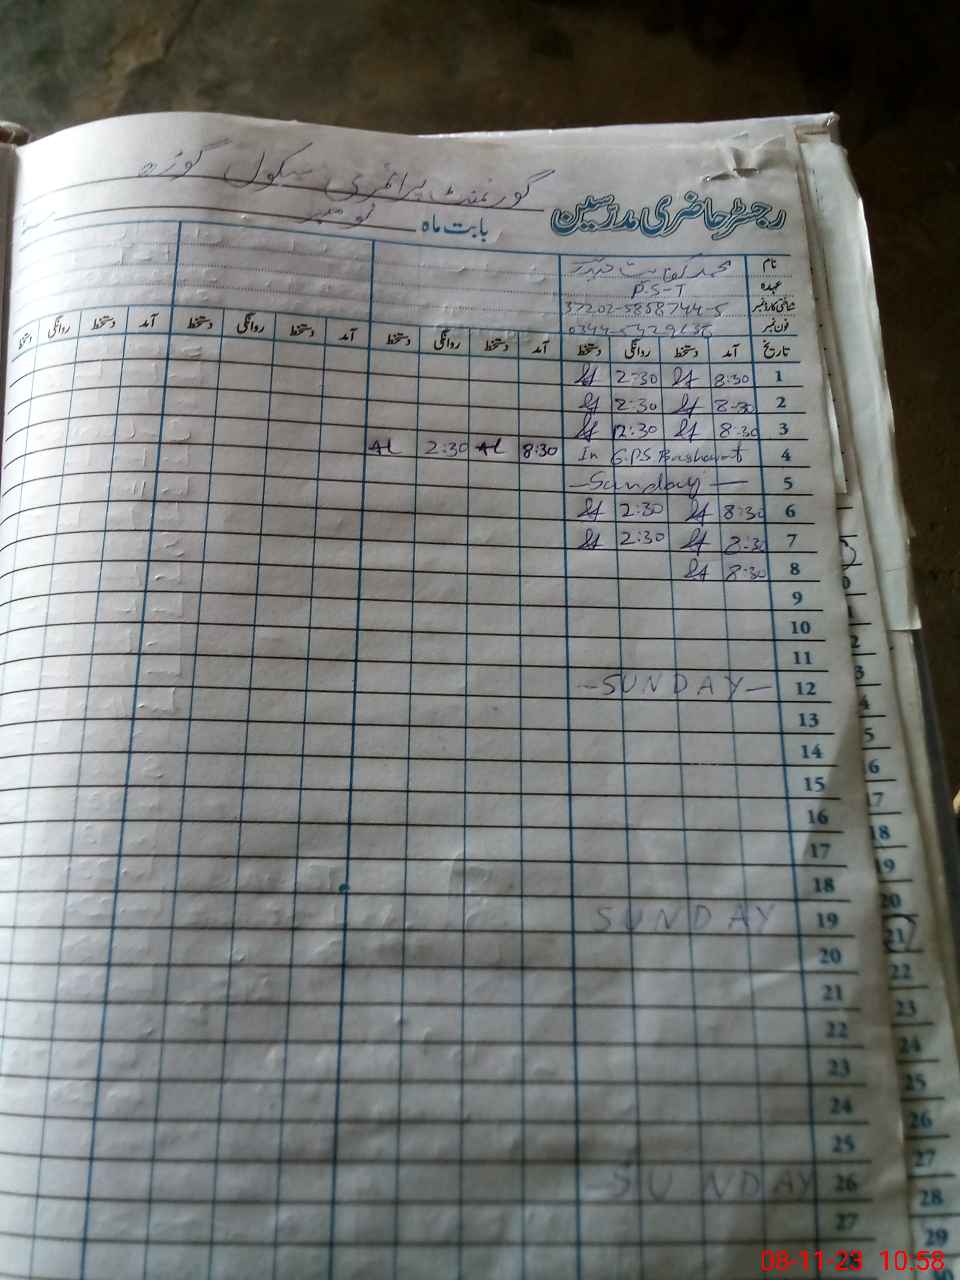 گورنمنٹ پرائمری سکول
رجسٹر حاضری مدرسین
بابت ماہ نومبر
نام محمد
عہدہ P.S-T
شناختی کارڈ نمبر 37202-5858744-5
فون نمبر
تاریخ آمد دستخط روانگی دستخط آمد دستخط روانگی دستخط آمد دستخط روانگی دستخط آمد دستخط روانگی دستخط
1 8:30 2:30
2 8:30 2:30
3 8:30 2:30
4 In G.P.S Basharat 8:30 2:30
5 —Sunday—
6 8:30 2:30
7 8:30 2:30
8 8:30
9
10
11
12 —SUNDAY—
13
14
15
16
17
18
19 SUNDAY
20
21
22
23
24
25
26 SUNDAY
27
28
2
3
4
5
6
17
18
19
20
21
22
23
24
25
26
27
28
29
08-11-23 10:58